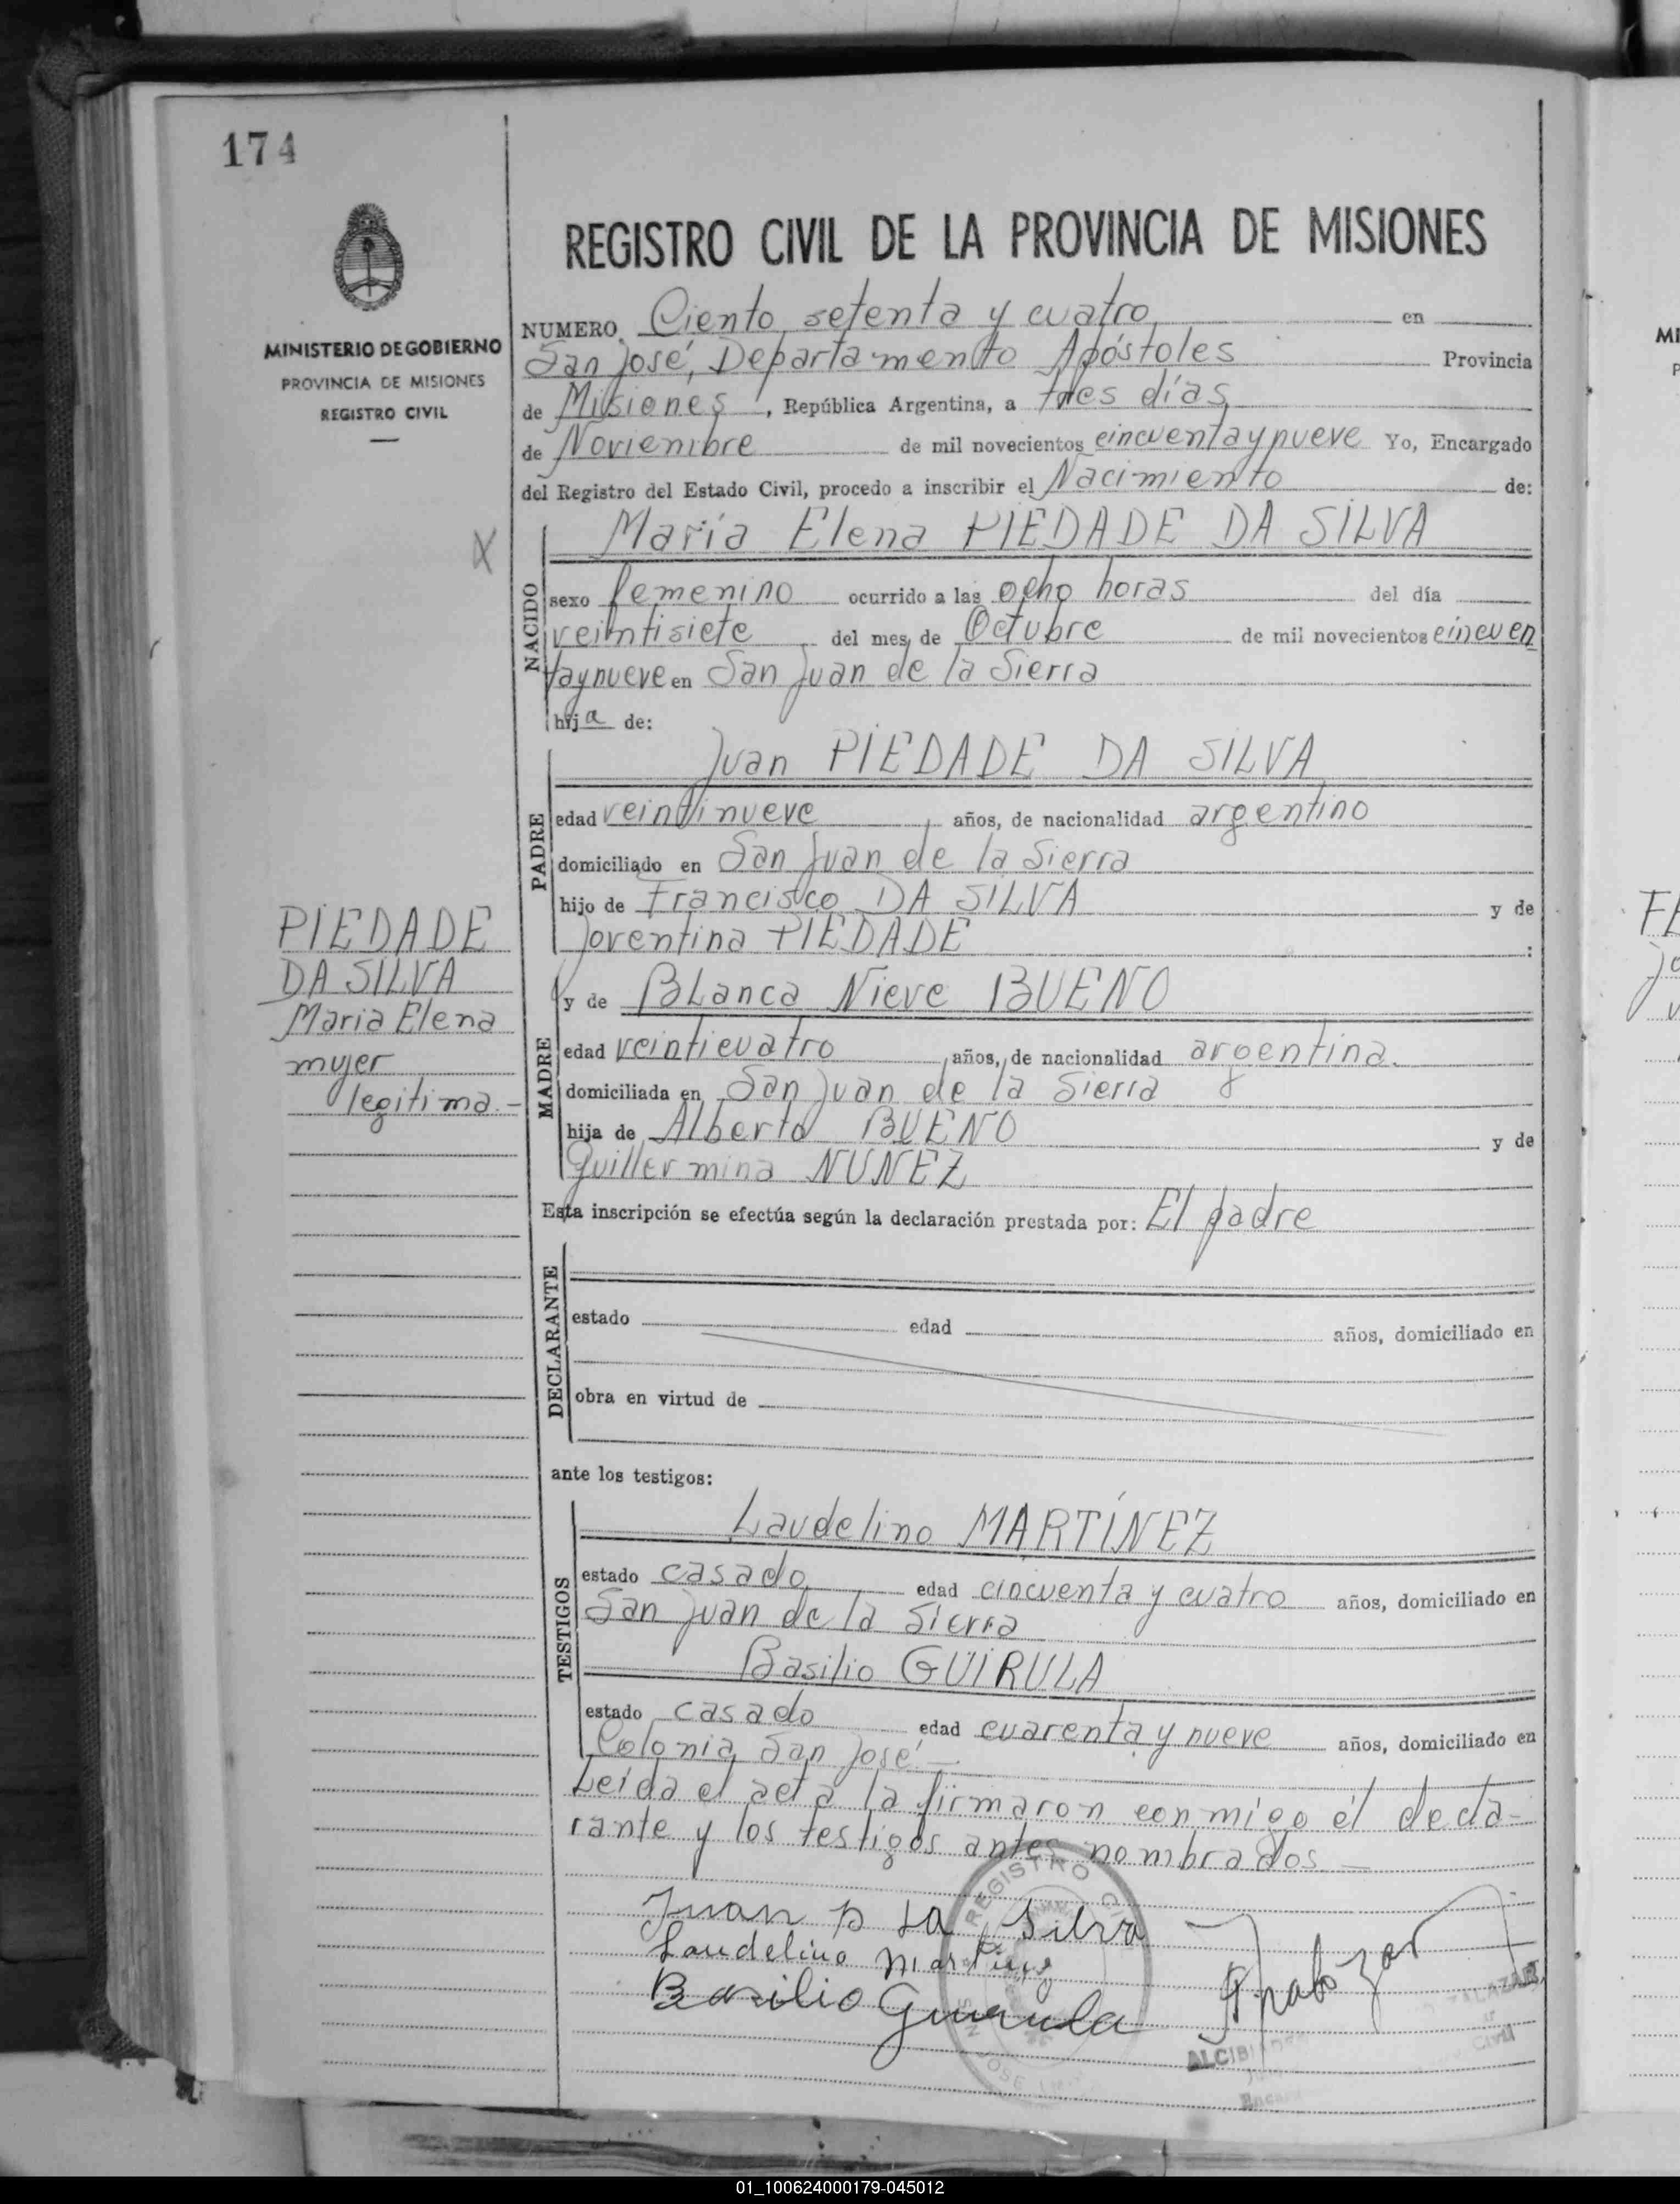 174
MINISTERIO DE GOBIERNO
PROVINCIA DE MISIONES
REGISTRO CIVIL
REGISTRO CIVIL DE LA PROVINCIA DE MISIONES
NUMERO Ciento setenta y cuatro en
San José, Departamento Apóstoles Provincia
de Misiones, República Argentina, a tres días
de Noviembre de mil novecientos cincuenta y nueve Yo, Encargado
del Registro del Estado Civil, procedo a inscribir el Nacimiento de:
NACIDO
María Elena PIEDADE DA SILVA
sexo femenino ocurrido a las ocho horas del día
veintisiete del mes de Octubre de mil novecientos cincuen
ta y nueve en San Juan de la Sierra
hija de:
PADRE
Juan PIEDADE DA SILVA
edad veintinueve años, de nacionalidad argentino
domiciliado en San Juan de la Sierra
hijo de Francisco DA SILVA y de
Joventina PIEDADE :
PIEDADE
DA SILVA
Maria Elena
mujer
legitima.-
MADRE
y de BLanca Nieve BUENO
edad veinticuatro años, de nacionalidad argentina.
domiciliada en San Juan de la Sierra
hija de Alberto BUENO y de
Guillermina NUNEZ
Esta inscripción se efectúa según la declaración prestada por: El padre
DECLARANTE
estado edad años, domiciliado en
obra en virtud de
ante los testigos:
TESTIGOS
Laudelino MARTÍNEZ
estado casado edad cincuenta y cuatro años, domiciliado en
San Juan de la Sierra
Basilio GUIRULA
estado casado edad cuarenta y nueve años, domiciliado en
Colonia San José.-
Leída el acta la firmaron conmigo él decla-
rante y los testigos antes nombrados.-
Juan P Da Silva
Laudelino Martinez
Basilio Guirula
REGISTRO CI
SAN JOSE
ALCIBIADES ZALAZAR
Civil
01_100624000179-045012